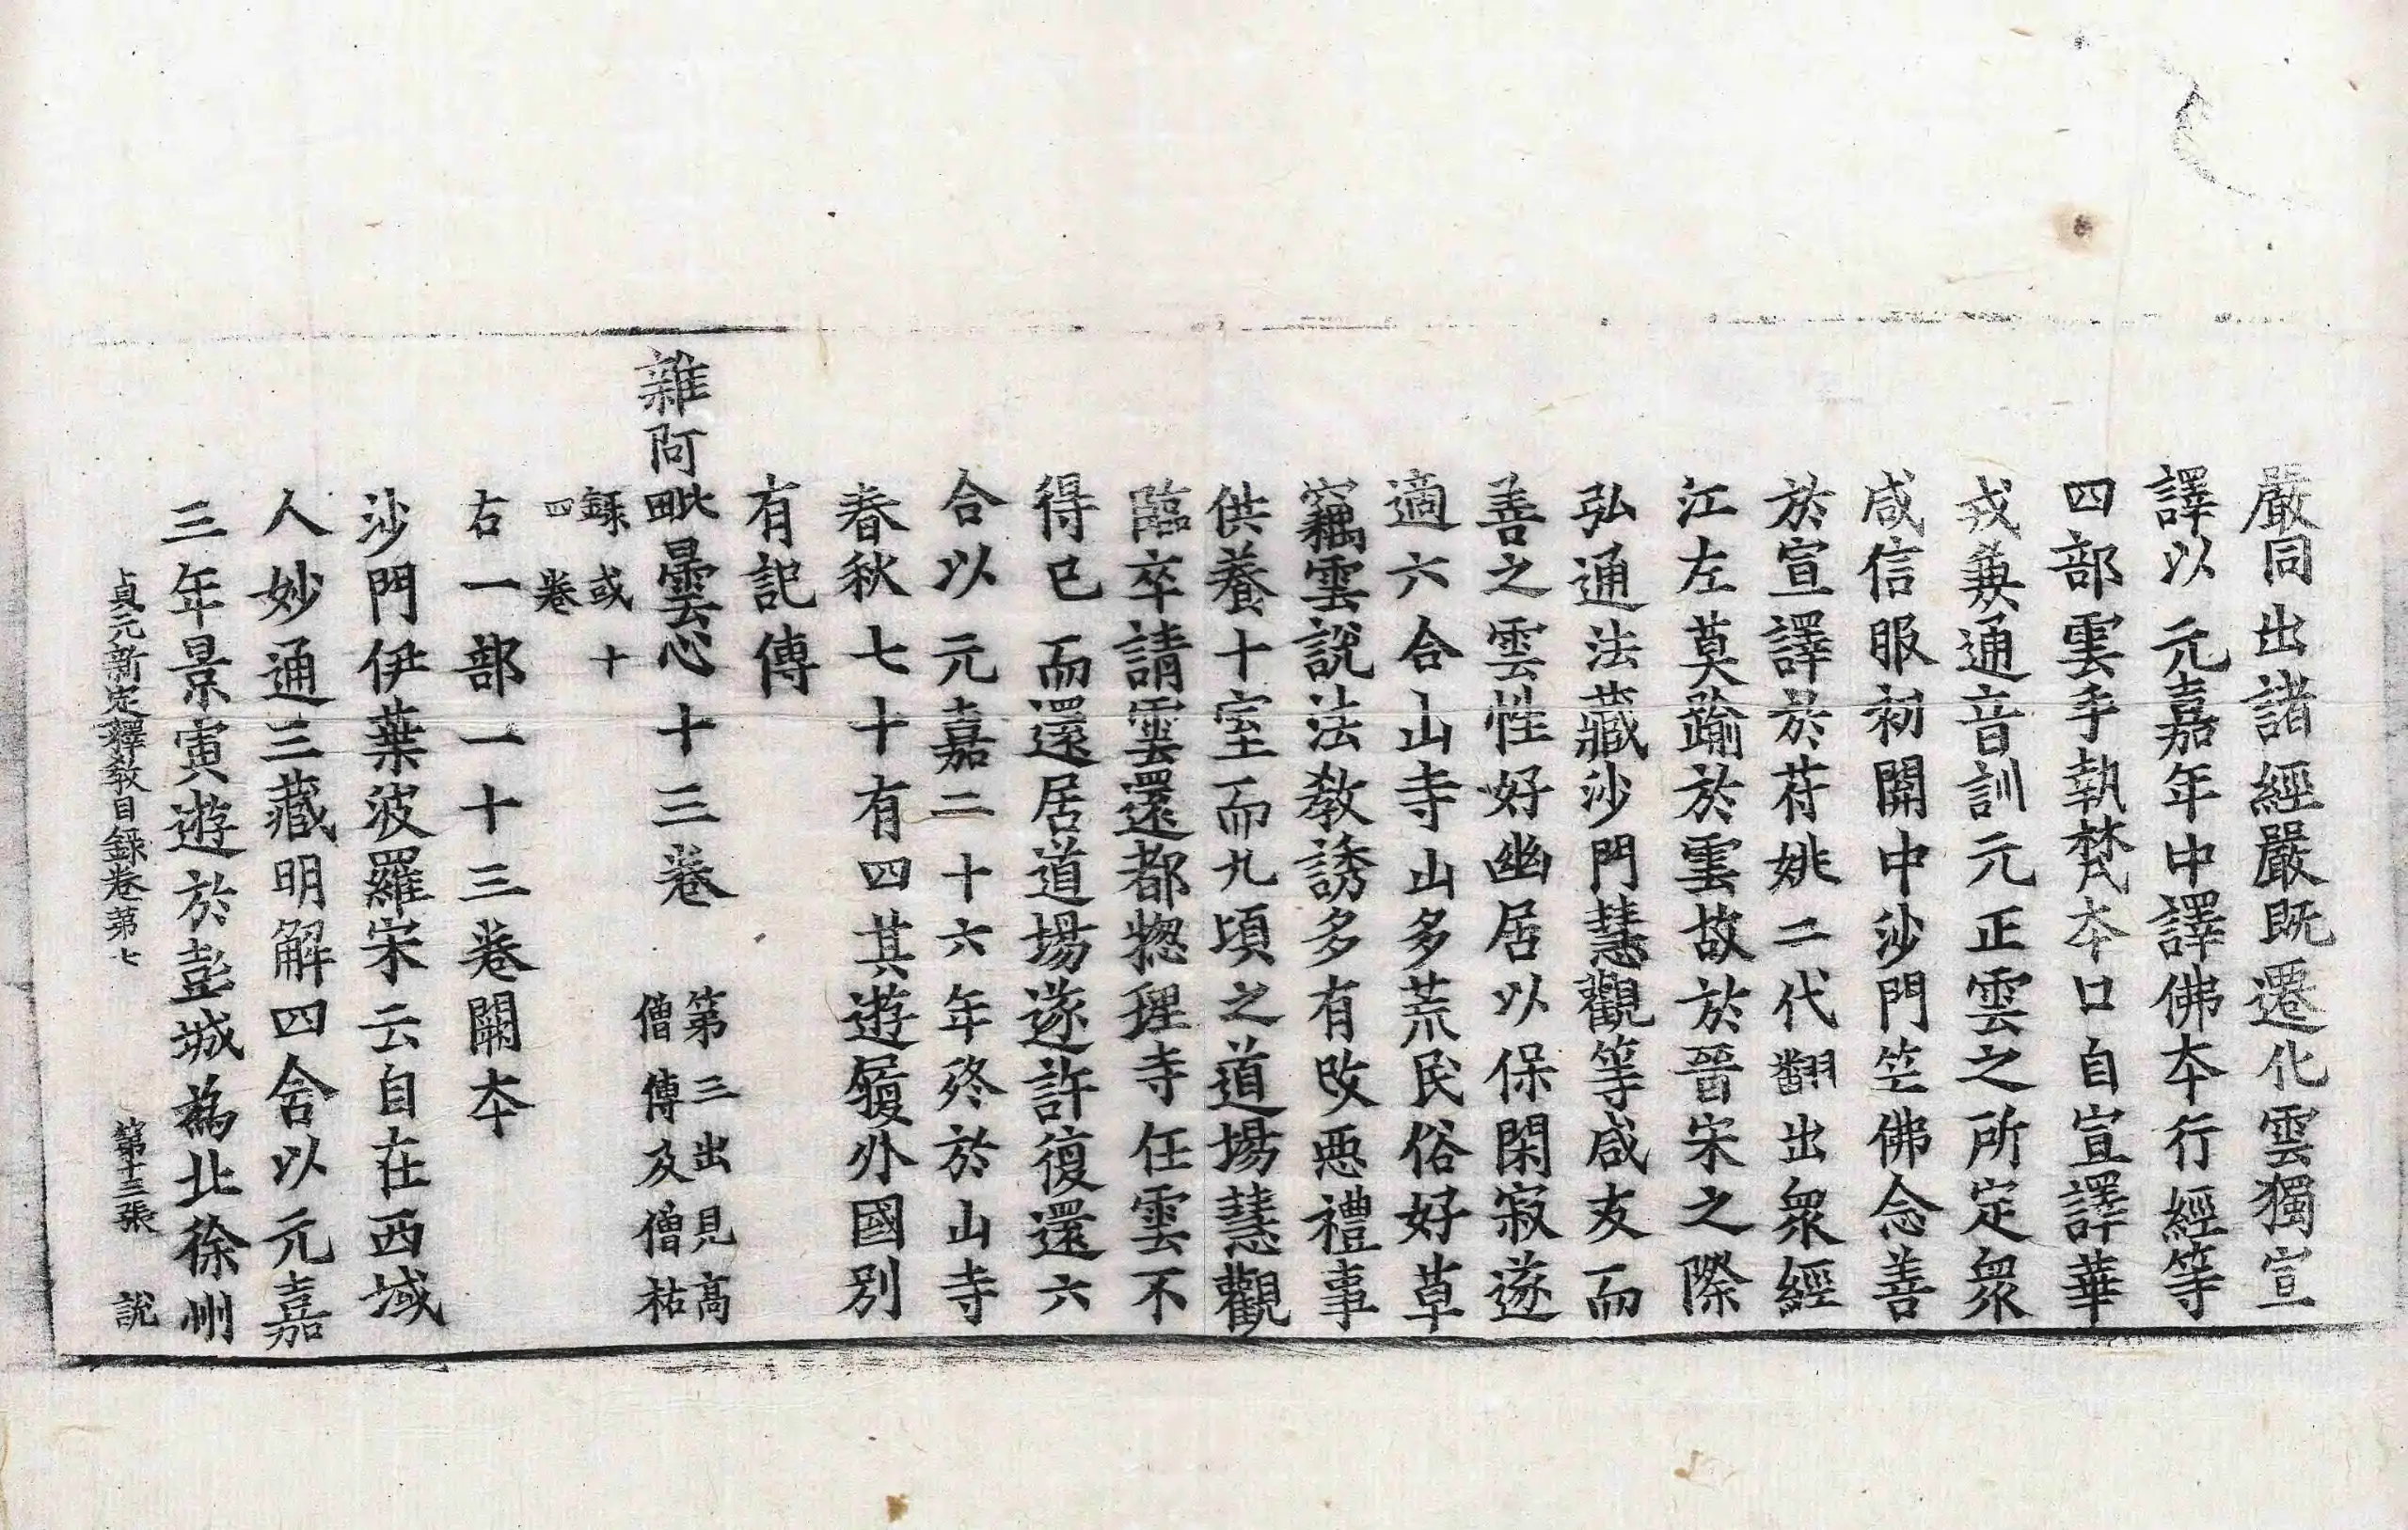 嚴同出諸經嚴既遷化雲獨宣
譯以元嘉年中譯佛本行經等
四部雲手執梵本口自宣譯華
戎兼通音訓元正雲之所定衆
咸信服初關中沙門竺佛念善
於宣譯於苻姚二代翻出衆經
江左莫踰於雲故於晉宋之際
弘通法藏沙門慧觀等咸友而
善之雲性好幽居以保閑寂遂
適六合山寺山多荒民俗好草
竊雲說法教誘多有改惡禮事
供養十室而九頃之道場慧觀
臨卒請雲還都惣理寺任雲不
得已而還居道場遂許復還六
合以元嘉二十六年終於山寺
春秋七十有四其遊履外國別
有記傳
雜阿毗曇心十三卷 第三出見高
僧傳及僧祐
錄或十
四卷
右一部一十三卷闕本
沙門伊葉波羅宋云自在西域
人妙通三藏明解四含以元嘉
三年景寅遊於彭城為北徐州
貞元新定釋教目錄卷第七 第十三張 說